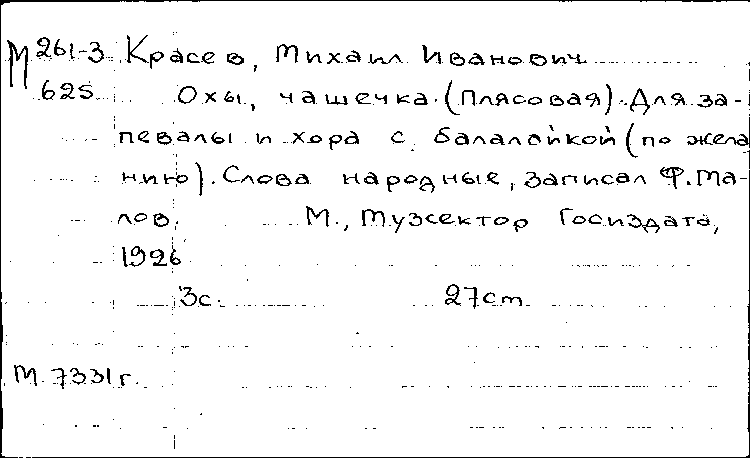 М 261-3 Красев, Михаил Иванович
625 Охы, чашечка. (Плясовая). Для за-
певалы и хора с балалайкой (по жела
нию). Слова народные, записал Ф. Ма-
лов. М., Музсектор Госиздата,
1926
3с. 27см
М. 7331г.